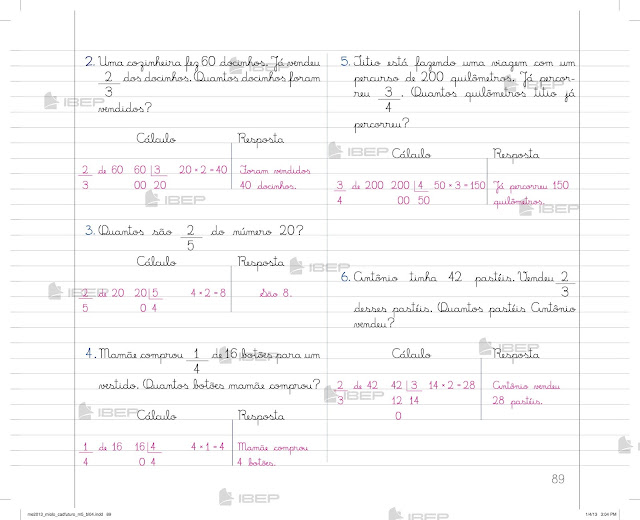 2. Uma cozinheira fez 60 docinhos. Já vendeu
2/3 dos docinhos. Quantos docinhos foram
vendidos?
Cálculo Resposta
2/3 de 60 60 |3 20 × 2 = 40 Foram vendidos
00 20 40 docinhos.
3. Quantos são 2/5 do número 20?
Cálculo Resposta
2/5 de 20 20 |5 4 × 2 = 8 São 8.
0 4
4. Mamãe comprou 1/4 de 16 botões para um
vestido. Quantos botões mamãe comprou?
Cálculo Resposta
1/4 de 16 16 |4 4 × 1 = 4 Mamãe comprou
0 4 4 botões.
5. Titio está fazendo uma viagem com um
percurso de 200 quilômetros. Já percor-
reu 3/4. Quantos quilômetros titio já
percorreu?
Cálculo Resposta
3/4 de 200 200 |4 50 × 3 = 150 Já percorreu 150
00 50 quilômetros.
6. Antônio tinha 42 pastéis. Vendeu 2/3
desses pastéis. Quantos pastéis Antônio
vendeu?
Cálculo Resposta
2/3 de 42 42 |3 14 × 2 = 28 Antônio vendeu
12 14 28 pastéis.
0
89
IBEP
IBEP
IBEP
IBEP
IBEP
IBEP
IBEP
IBEP
IBEP
IBEP
IBEP
IBEP
IBEP
IBEP
1/4/13 2:54 PM